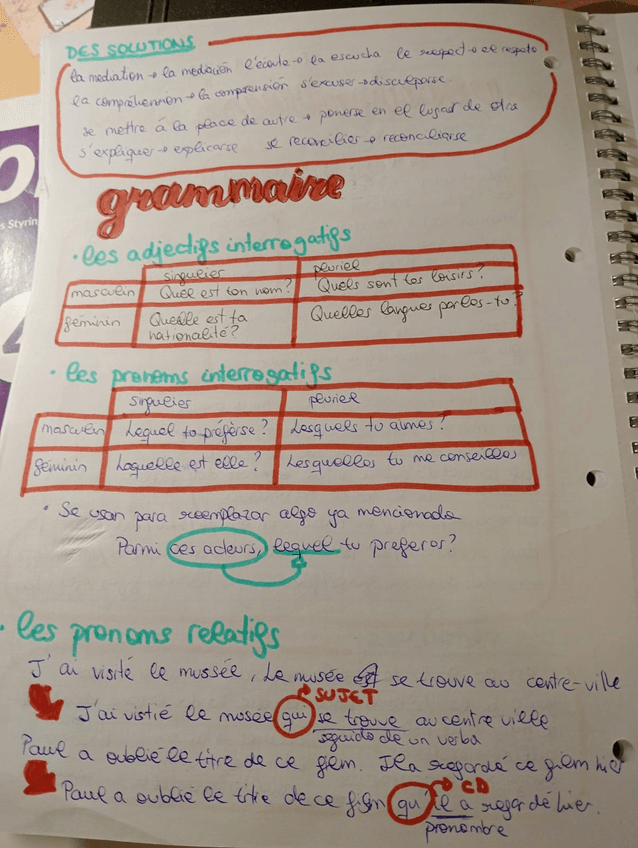 DES SOLUTIONS
la mediation → la mediación l'écoute → la escucha le respect → el respeto
la compréhension → la comprensión s'excuser → disculparse
se mettre à la place de autre → ponerse en el lugar de otra
s'expliquer → explicarse se reconcilier → reconciliarse
grammaire
• les adjectifs interrogatifs
singulier pluriel
masculin Quel est ton nom? Quels sont tes loisirs?
féminin Quelle est ta nationalité? Quelles langues parles-tu?
• les pronoms interrogatifs
singulier pluriel
masculin Lequel tu préfèrse? Lesquels tu aimes?
féminin Laquelle est elle? Lesquelles tu me conseilles
• Se usan para reemplazar algo ya mencionado
Parmi ces acteurs, lequel tu preferes?
• les pronoms relatifs
J'ai visité le mussée, Le musée se trouve au centre-ville
SUJET
J'ai vistié le musée qui se trouve au centre ville
seguido de un verbo
Paul a oublié le titre de ce film. Il a regardé ce film hier
CD
Paul a oublié le titre de ce film qu'il a regardé hier.
pronombre
s Styrin